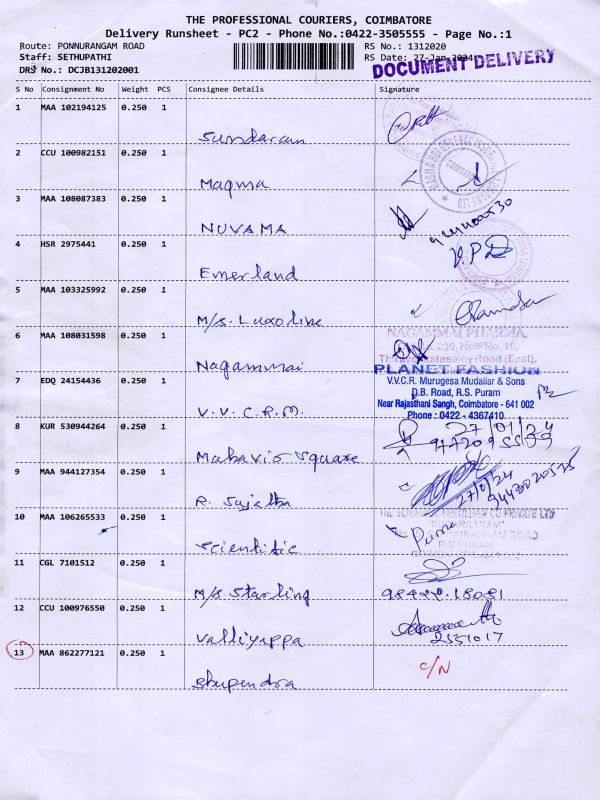 THE PROFESSIONAL COURIERS, COIMBATORE
Delivery Runsheet - PC2 - Phone No.:0422-3505555 - Page No.:1
Route: PONNURANGAM ROAD
RS No.: 1312020
Staff: SETHUPATHI
RS Date: 27-Jan-2024
DRS No.: DCJB131202001
DOCUMENT DELIVERY
S No Consignment No Weight PCS Consignee Details Signature
1 MAA 102194125 0.250 1
Sundaram
2 CCU 100982151 0.250 1
Magma
3 MAA 108087383 0.250 1
NUVAMA
4 HSR 2975441 0.250 1
Emerland
5 MAA 103325992 0.250 1
M/S. Luxoline
6 MAA 108031598 0.250 1
NAGAMMAI PHARMA
Nagammai
PLANET FASHION
7 EDQ 24154436 0.250 1
V.V.C.R. Murugesa Mudaliar & Sons
D.B. Road, R.S. Puram
Near Rajasthani Sangh, Coimbatore - 641 002
V.V.C.R.M.
Phone : 0422 - 4367410
8 KUR 530944264 0.250 1
27/01/24
Mahavir Square
9 MAA 944127354 0.250 1
27/01/24
R. Sujatha
10 MAA 106265533 0.250 1
Scientific
11 CGL 7101512 0.250 1
M/S Starling
98422.18081
12 CCU 100976550 0.250 1
Valliyappa
2551017
13 MAA 862277121 0.250 1
C/N
Bhupendra